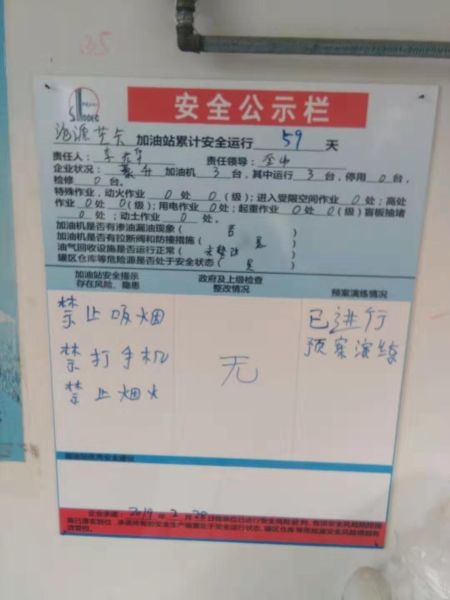 35
安全公示栏
加油站累计安全运行 59 天
责任人： 责任领导：
企业状况： 加油机 3 台，其中运行 3 台，停用 0 台，
检修 0 台。
特殊作业，动火作业 0 处 0（级）；进入受限空间作业 0 处；高处
作业 0 处 0（级）；用电作业 0 处；起重作业 0 处 0（级）盲板抽堵
0 处；动土作业 0 处。
加油机是否有渗油漏油现象（ 否 ）
加油机是否有拉断阀和防撞措施（ 是 ）
油气回收设施是否运行正常（ ）
罐区仓库等危险源是否处于安全状态（ 是 ）
加油站安全提示
存在风险、隐患
政府及上级检查
整改情况
预案演练情况
禁止吸烟
禁打手机
禁止烟火
无
已进行
预案演练
企业承诺：2019 年 2 月 28 日